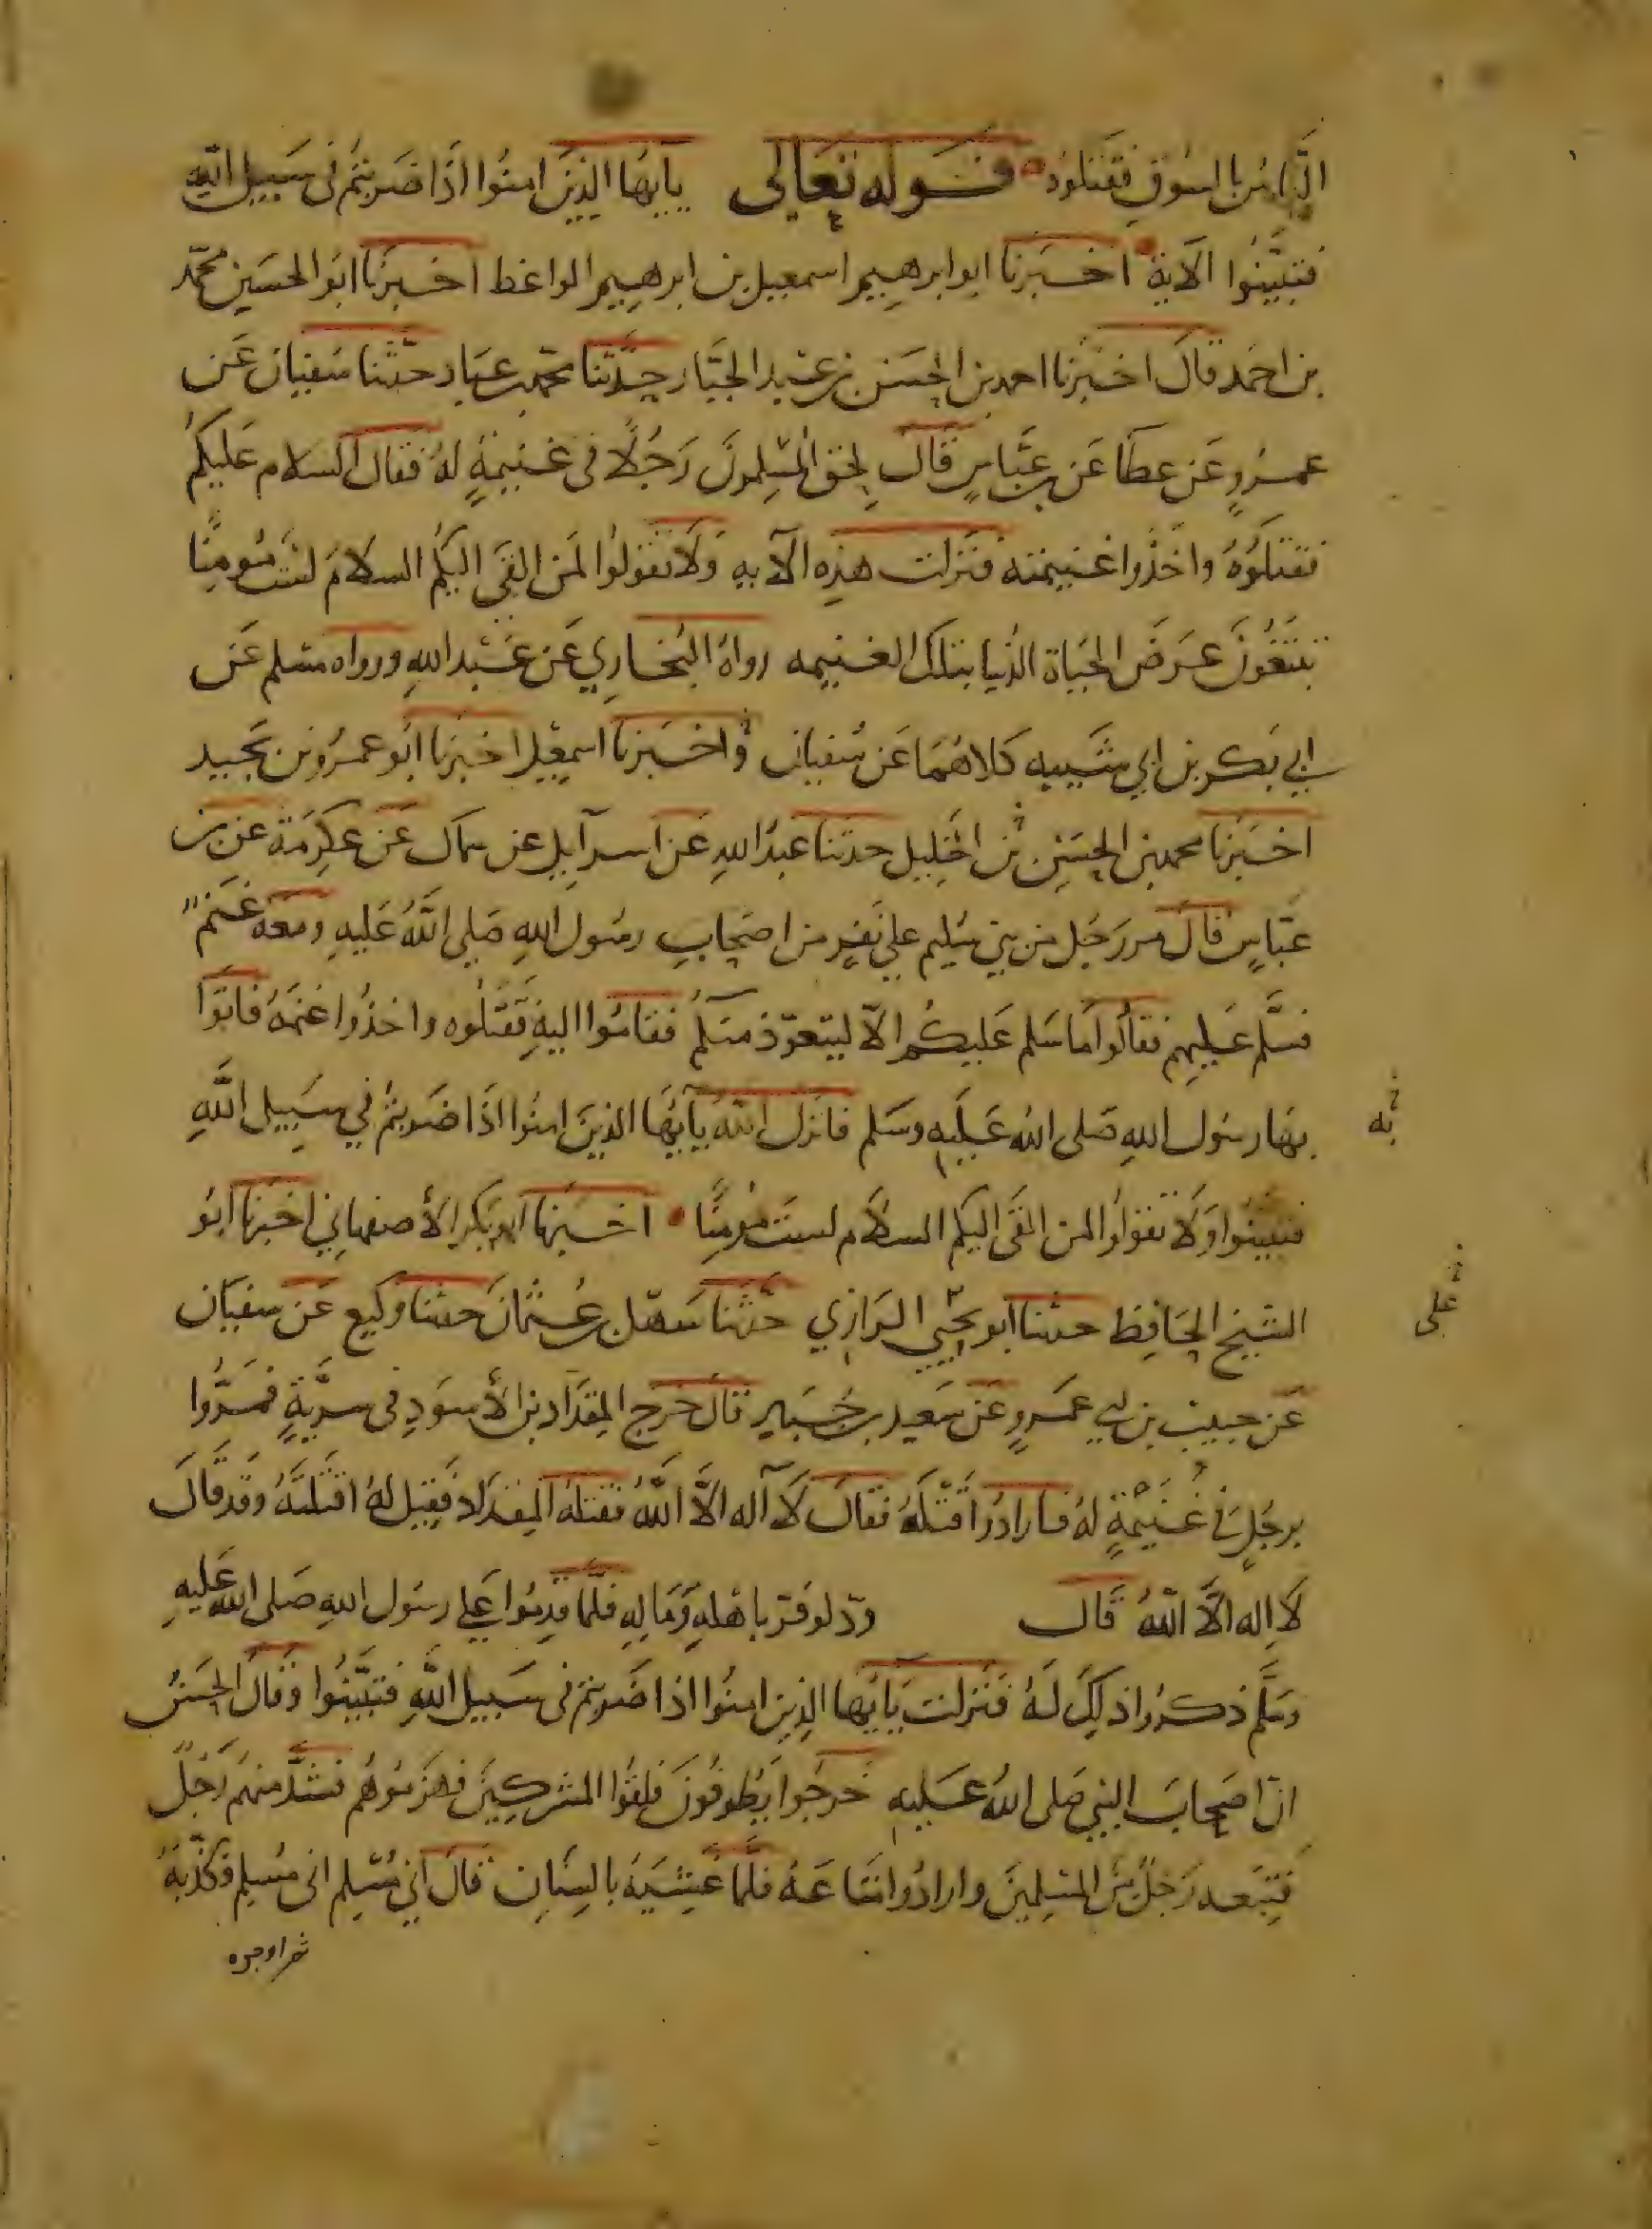 الناس بالسوق فقتلوه قوله تعالى يايها الذين امنوا اذا ضربتم في سبيل الله
فتبينوا الآية اخبرنا ابو ابرهيم اسمعيل بن ابرهيم الواعظ اخبرنا ابو الحسين محمد
بن احمد قال اخبرنا احمد بن الحسن بن عبد الجبار حدثنا محمد بن عباد حدثنا سفيان عن
عمرو عن عطا عن بن عباس قال لحق المسلمون رجلا في غنيمة له فقال السلام عليكم
فقتلوه واخذوا غنيمته فنزلت هذه الآيه ولا تقولوا لمن القى اليكم السلام لست مومنا
تبتغون عرض الحياة الدنيا بتلك الغنيمه رواه البخاري عن عبد الله ورواه مسلم عن
ابي بكر بن ابي شيبه كلاهما عن سفيان واخبرنا اسمعيل اخبرنا ابو عمرو بن نجيد
اخبرنا محمد بن الحسين بن الخليل حدثنا عبد الله عن اسرآيل عن سماك عن عكرمة عن بن
عباس قال مر رجل من بني سليم على نفر من اصحاب رسول الله صلى الله عليه ومعه غنم
فسلم عليهم فقالوا ما سلم عليكم الا ليتعوذ منكم فقاموا اليه فقتلوه واخذوا غنمه فاتوا
بها رسول الله صلى الله عليه وسلم فانزل الله يآيها الذين امنوا اذا ضربتم في سبيل الله
به
فتبينوا ولا تقولوا لمن القى اليكم السلام لست مومنا اخبرنا ابو بكر الأصفهاني اخبرنا ابو
الشيخ الحافظ حدثنا ابو يحيى الرازي حدثنا سهل بن عثمان حدثنا وكيع عن سفيان
على
عن حبيب بن ابي عمرو عن سعيد بن جبير قال خرج المقداد بن الأسود في سرية فمروا
برجل في غنيمة له فارادوا قتله فقال لا آله الا الله فقتله المقداد فقيل له اقتلته وقد قال
لا اله الا الله قال ود لو فر باهله وماله فلما قدموا على رسول الله صلى الله عليه
وسلم ذكروا ذلك له فنزلت يآيها الذين امنوا اذا ضربتم في سبيل الله فتبينوا وقال الحسن
ان اصحاب النبي صلى الله عليه خرجوا يطوفون فلقوا المشركين فهزموهم فشد منهم رجل
فتبعه رجل من المسلمين وارادوا متاعه فلما غشيه بالسنان قال اني مسلم اني مسلم فكذبه